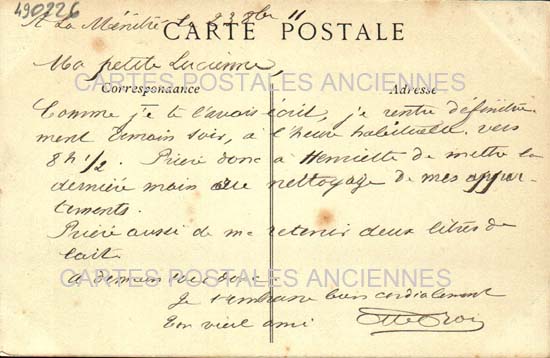 490226
A La Ménitré le 23 8bre 11
CARTE POSTALE
Ma petite Lucienne,
CARTES POSTALES ANCIENNES
Correspondance
Adresse
Comme je te l'avais écrit, je rentre définitive
ment demain soir, à l'heure habituelle vers
8h 1/2. Prière donc à Henriette de mettre la
dernière main au nettoyage de mes appar-
tements.
Prière aussi de me retenir deux litres de
lait.
CARTES POSTALES ANCIENNES
A demain soir donc
Je t'embrasse bien cordialement
Ton vieil ami